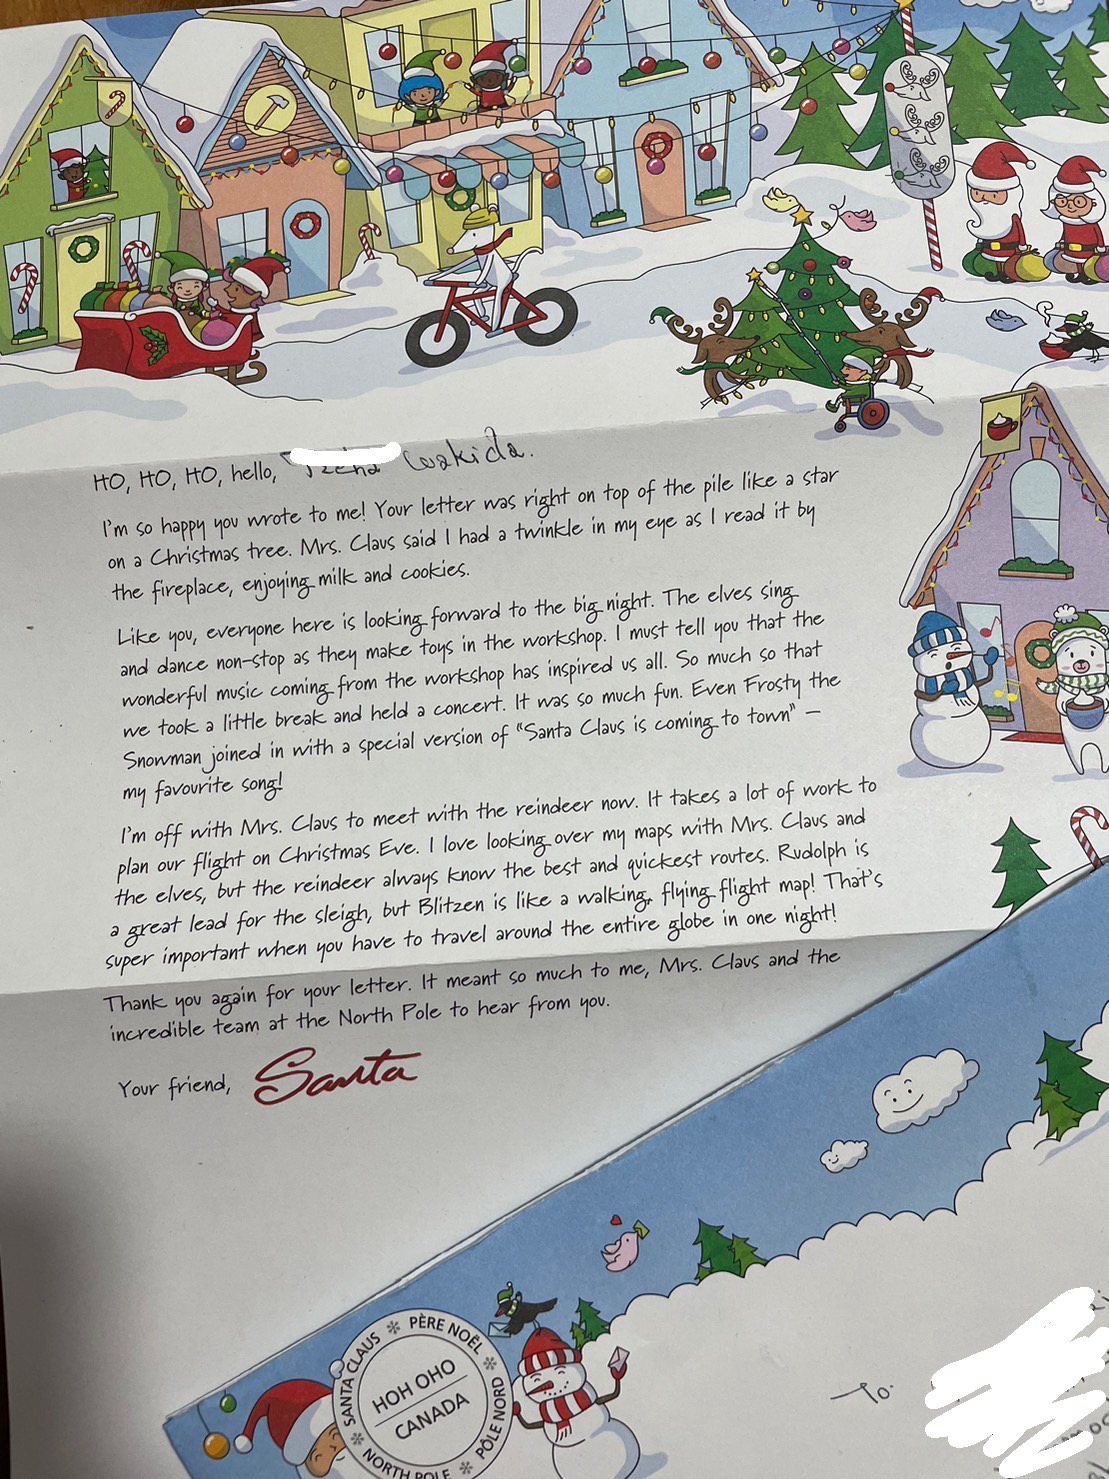 HO, HO, HO, hello, Wakida.
I'm so happy you wrote to me! Your letter was right on top of the pile like a star
on a Christmas tree. Mrs. Claus said I had a twinkle in my eye as I read it by
the fireplace, enjoying milk and cookies.
Like you, everyone here is looking forward to the big night. The elves sing
and dance non-stop as they make toys in the workshop. I must tell you that the
wonderful music coming from the workshop has inspired us all. So much so that
we took a little break and held a concert. It was so much fun. Even Frosty the
Snowman joined in with a special version of "Santa Claus is coming to town" –
my favourite song!
I'm off with Mrs. Claus to meet with the reindeer now. It takes a lot of work to
plan our flight on Christmas Eve. I love looking over my maps with Mrs. Claus and
the elves, but the reindeer always know the best and quickest routes. Rudolph is
a great lead for the sleigh, but Blitzen is like a walking, flying flight map! That's
super important when you have to travel around the entire globe in one night!
Thank you again for your letter. It meant so much to me, Mrs. Claus and the
incredible team at the North Pole to hear from you.
Your friend, Santa
SANTA CLAUS PÈRE NOËL
HOH OHO
CANADA
NORTH POLE PÔLE NORD
To.